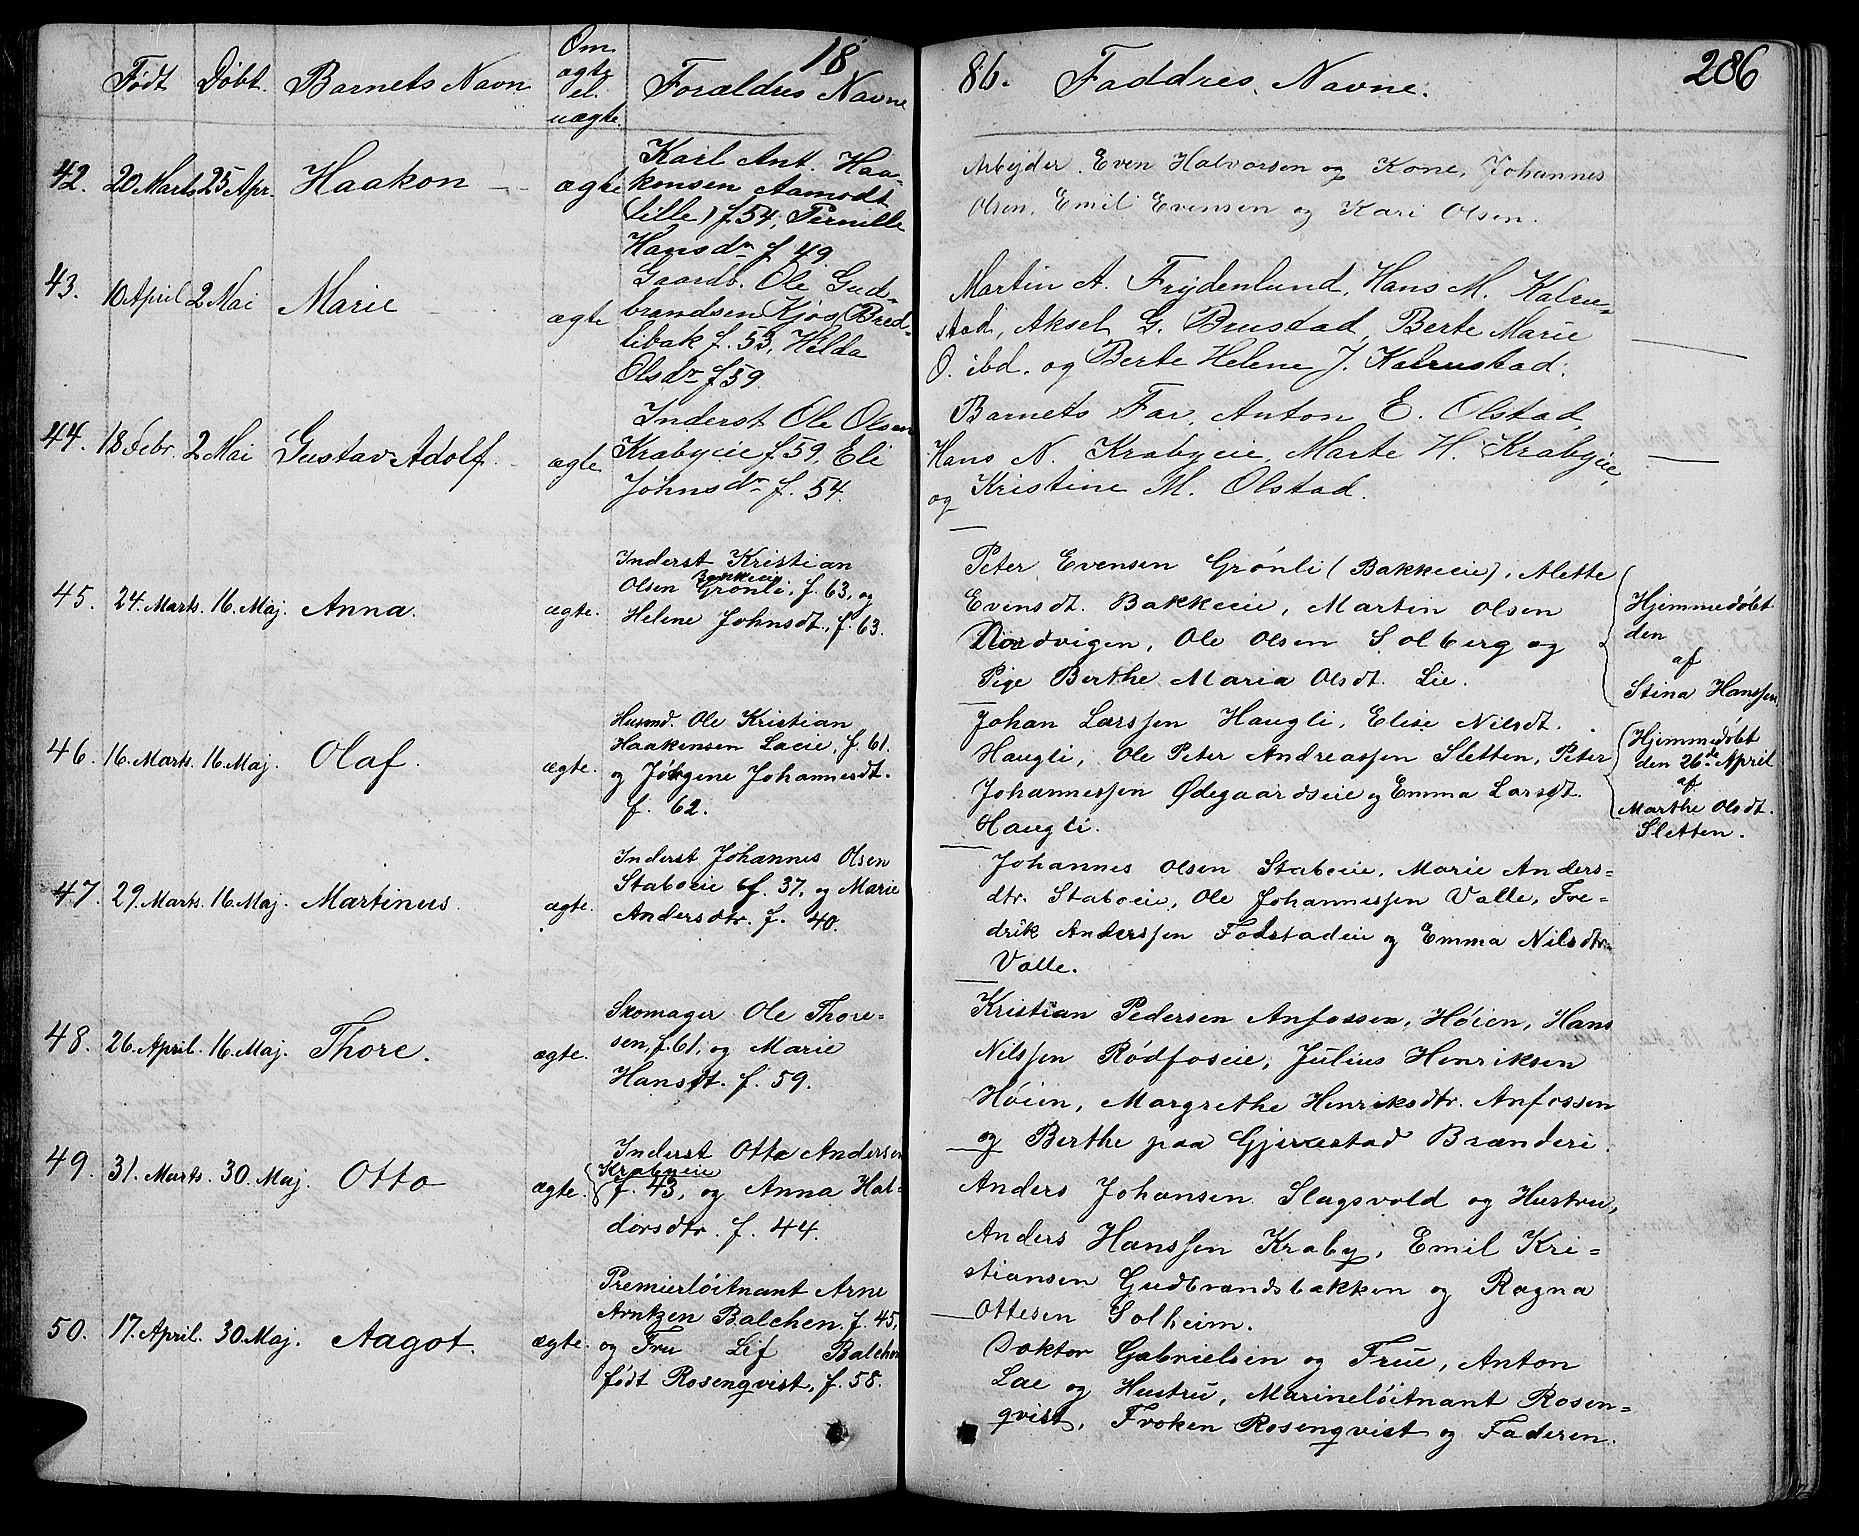 1886.
286
Født Døbt. Barnets Navn Om ægte el. uægte. Forældres Navne Faddres Navne.
42. 20 Marts 25 Apr. Haakon ægte
Karl Ant. Haa-
konsen Aamodt
(lille) f. 54, Pernille
Hansdr f. 49.
Arbejder Even Halvorsen og Kone, Johannes
Olsen, Emil Evensen og Kari Olsen.
43. 10 April 2 Mai Marie ægte
Gaardb. Ole Gud-
brandsen Kjøs, Bred-
libak f. 53, Hilda
Olsdr f 59.
Martin A. Frydenlund, Hans M. Kalru-
stad, Aksel G. Brustad, Berte Marie
O. ibd. og Berte Helene J. Kalrustad.
44. 18 Febr. 2 Mai Gustav Adolf. ægte
Inderst Ole Olsen
Krabyeie f 59, Eli
Johnsdr f. 54.
Barnets Far, Anton E. Olstad,
Hans N. Krabyeie, Marte H. Krabyeie,
og Kristine M. Olstad.
45. 24. Marts. 16. Maj. Anna. ægte.
Inderst Kristian
Bakkeeie
Olsen Grönli, f. 63, og
Helene Johnsdt., f. 63.
Peter Evensen Grönli (Bakkeeie), Alette
Evensdt. Bakkeeie, Martin Olsen
Nordvigen, Ole Olsen Solberg og
Pige Berthe Maria Olsdt. Lie.
Hjemmedøbt
den
af
Stina Hanssen
46. 16. Marts. 16. Maj. Olaf. ægte.
Husmd. Ole Kristian
Haakensen Laeie, f. 61.
og Jörgine Johannesdt.
f. 62.
Johan Larssen Haugli, Elise Nilsdt.
Haugli, Ole Peter Andreassen Sletten, Peter
Johannessen Ødegaardseie og Emma Larsdt.
Haugli.
Hjemmedøbt
den 26de April
af
Marthe Olsdt.
Sletten.
47. 29. Marts. 16. Maj. Martinus. ægte.
Inderst Johannes Olsen
Staboeie f. 37, og Marie
Andersdtr. f. 40.
Johannes Olsen Staboeie, Marie Anders-
dtr. Staboeie, Ole Johannessen Valle, Fre-
drik Anderssen Fodstadeie og Emma Nilsdtr.
Valle.
48. 26. April. 16. Maj. Thore. ægte.
Skomager Ole Thore-
sen, f. 61, og Marie
Hansdt. f. 59.
Kristian Pedersen Anfossen, Høien, Hans
Nilssen Rødfoseie, Julius Henriksen
Høien, Margrethe Henriksdtr. Anfossen
og Berthe paa Gjivestad Brænderi.
49. 31. Marts. 30. Maj. Otto ægte.
Inderst Otto Andersen
Krabyeie
f. 43, og Anna Hal-
dorsdtr. f. 44.
Anders Johansen Slagsvold og Hustru,
Anders Hanssen Kraby, Emil Kri-
stiansen Gudbrandsbakken og Ragna
Ottesen Solheim.
50. 17. April. 30 Maj. Aagot. ægte.
Premierløitnant Arne
Arntzen Balchen. f. 45,
og Fru Lif Balchen
født Rosenqvist, f. 58.
Doktor Gabrielsen og Frue, Anton
Lae og Hustru, Marineløitnant Rosen-
qvist, Frøken Rosenqvist og Faderen.